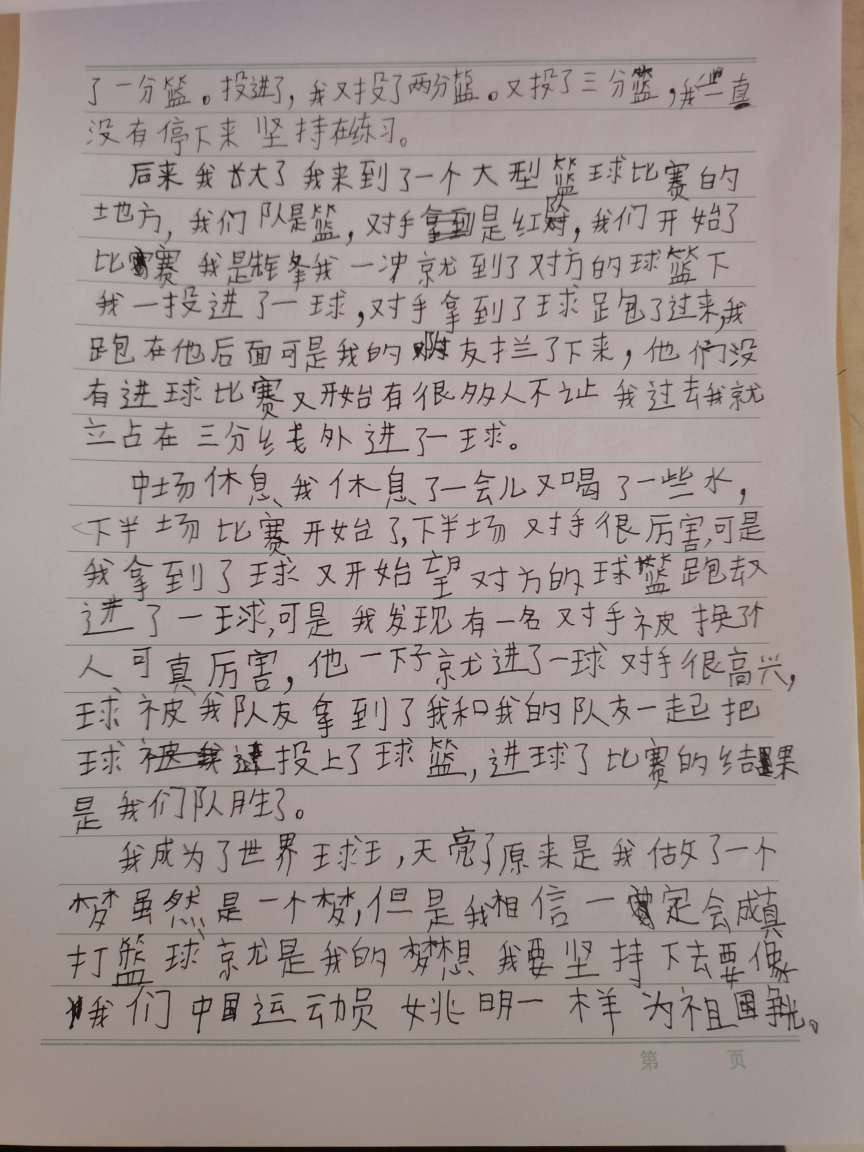 了一分篮。投进了，我又投了两分篮。又投了三分篮，我一直
没有停下来坚持在练习。
后来我长大了我来到了一个大型篮球比赛的
地方，我们队是篮，对手是红队，我们开始了
比赛我是我一冲就到了对方的球篮下
我一投进了一球，对手拿到了球跑了过来，我
跑在他后面可是我的队友拦了下来，他们没
有进球比赛又开始有很多人不让我过去我就
站在三分线外进了一球。
中场休息，我休息了一会儿又喝了一些水，
下半场比赛开始了，下半场对手很厉害，可是
我拿到了球又开始望对方的球篮跑去又
进了一球，可是我发现有一名对手被换了个
人可真厉害，他一下子就进了一球对手很高兴，
球被我队友拿到了我和我的队友一起把
球投上了球篮，进球了比赛的结果
是我们队胜了。
我成为了世界球王，天亮了原来是我做了一个
梦虽然是一个梦，但是我相信一定会成真
打篮球就是我的梦想我要坚持下去要像
我们中国运动员姚明一样为祖国争光。
第 页